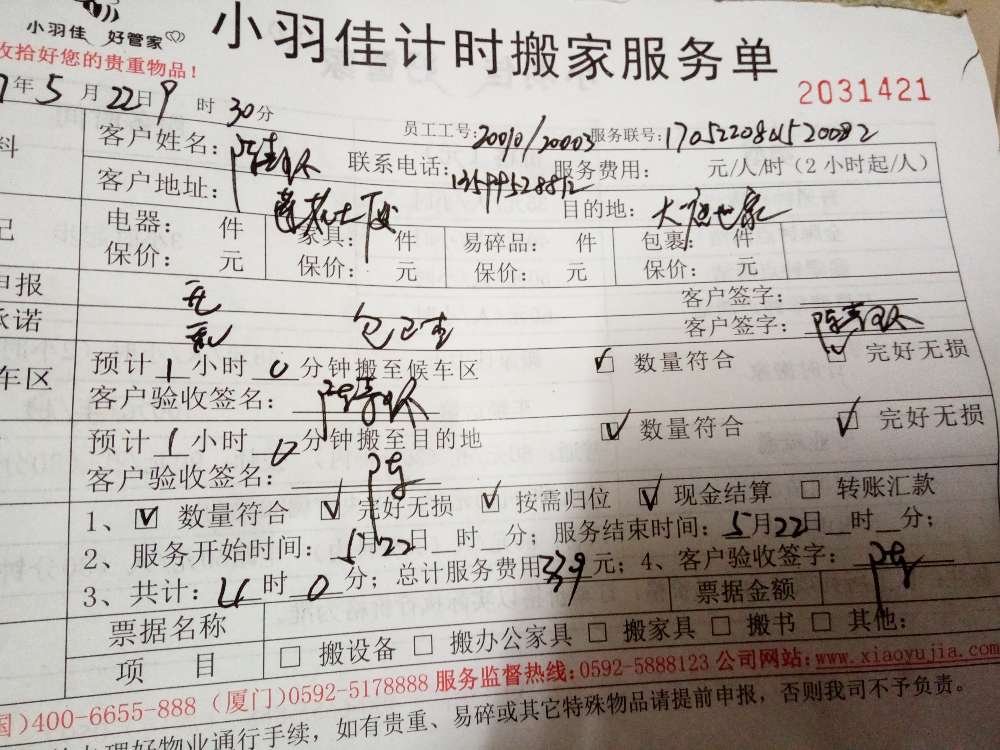 小羽佳 好管家
小羽佳计时搬家服务单
收拾好您的贵重物品！
2031421
7年5月22日9时30分
员工工号：20010/20003 服务联号：
客户姓名：
联系电话：
服务费用： 元/人/时（2小时起/人）
客户地址：莲花 目的地：大唐世家
电器： 件 家具： 件 易碎品： 件 包裹： 件
保价： 元 保价： 元 保价： 元 保价： 元
申报 无 客户签字：
承诺 客户签字：
预计1小时0分钟搬至候车区 数量符合 完好无损
车区
客户验收签名：
预计1小时0分钟搬至目的地 数量符合 完好无损
客户验收签名：
1、 数量符合 完好无损 按需归位 现金结算 转账汇款
2、服务开始时间：5月22日 时 分；服务结束时间：5月22日 时 分；
3、共计：4时0分；总计服务费用339元；4、客户验收签字：
票据名称 票据金额
项目 搬设备 搬办公家具 搬家具 搬书 其他：
国)400-6655-888 (厦门)0592-5178888 服务监督热线：0592-5888123 公司网站：www.xiaoyujia.com
办理好物业通行手续，如有贵重、易碎或其它特殊物品请提前申报，否则我司不予负责。